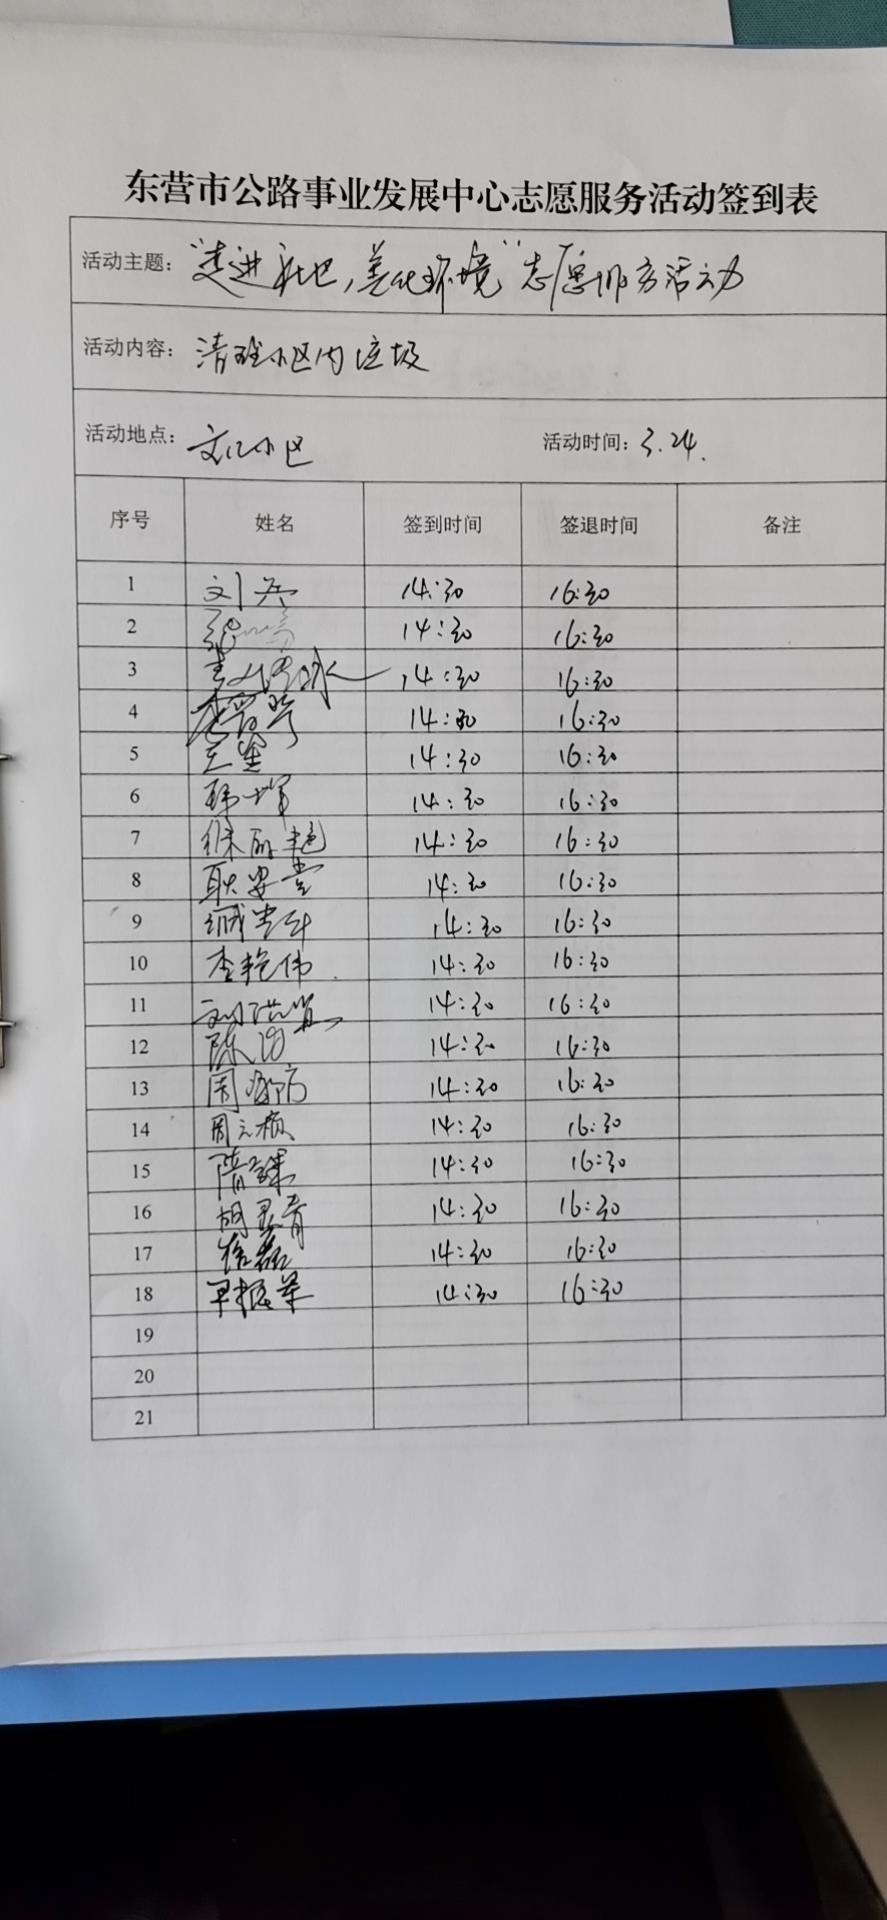 东营市公路事业发展中心志愿服务活动签到表
活动主题："走进社区,美化环境"志愿服务活动
活动内容：清理小区内垃圾
活动地点：文汇小区 活动时间：3.24.
序号 姓名 签到时间 签退时间 备注
1 刘兵 14:30 16:30
2 14:30 16:30
3 14:30 16:30
4 14:30 16:30
5 王鉴 14:30 16:30
6 韩辉 14:30 16:30
7 徐丽艳 14:30 16:30
8 耿安堂 14:30 16:30
9 14:30 16:30
10 李艳伟 14:30 16:30
11 14:30 16:30
12 陈 14:30 16:30
13 周 14:30 16:30
14 周元极 14:30 16:30
15 隋 14:30 16:30
16 胡灵青 14:30 16:30
17 徐磊 14:30 16:30
18 14:30 16:30
19
20
21